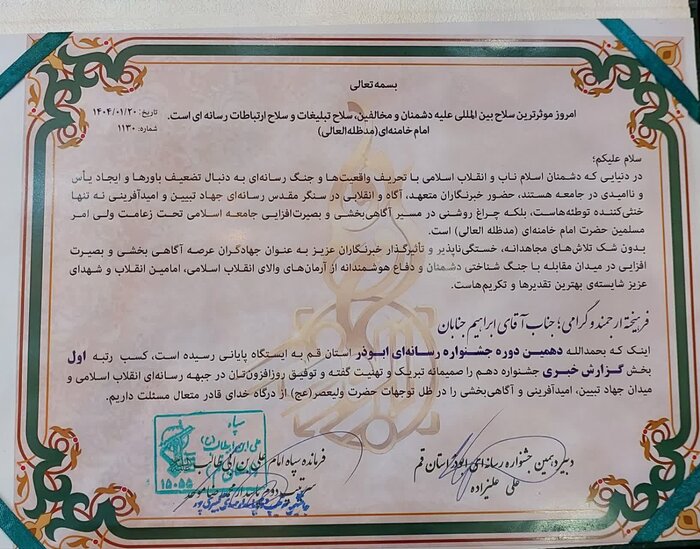 بسمه تعالی
تاریخ: ۱۴۰۴/۰۱/۲۰
شماره: ۱۱۳۰
امروز موثرترین سلاح بین المللی علیه دشمنان و مخالفین، سلاح تبلیغات و سلاح ارتباطات رسانه ای است.
امام خامنه‌ای(مدظله‌العالی)
سلام علیکم؛
در دنیایی که دشمنان اسلام ناب و انقلاب اسلامی با تحریف واقعیت‌ها و جنگ رسانه‌ای به دنبال تضعیف باورها و ایجاد یأس
و ناامیدی در جامعه هستند، حضور خبرنگاران متعهد، آگاه و انقلابی در سنگر مقدس رسانه‌ای جهاد تبیین و امیدآفرینی نه تنها
خنثی‌کننده توطئه‌هاست، بلکه چراغ روشنی در مسیر آگاهی‌بخشی و بصیرت‌افزایی جامعه اسلامی تحت زعامت ولی امر
مسلمین حضرت امام خامنه‌ای (مدظله العالی) است.
بدون شک تلاش‌های مجاهدانه، خستگی‌ناپذیر و تأثیرگذار خبرنگاران عزیز به عنوان جهادگران عرصه آگاهی بخشی و بصیرت
افزایی در میدان مقابله با جنگ شناختی دشمنان و دفاع هوشمندانه از آرمان‌های والای انقلاب اسلامی، امامین انقلاب و شهدای
عزیز شایسته‌ی بهترین تقدیرها و تکریم‌هاست.
فرهیخته ارجمند و گرامی؛ جناب آقای ابراهیم جنابان
اینک که بحمدالله دهمین دوره جشنواره رسانه‌ای ابوذر استان قم به ایستگاه پایانی رسیده است، کسب رتبه اول
بخش گزارش خبری جشنواره دهم را صمیمانه تبریک و تهنیت گفته و توفیق روزافزون‌تان در جبهه رسانه‌ای انقلاب اسلامی و
میدان جهاد تبیین، امیدآفرینی و آگاهی‌بخشی را در ظل توجهات حضرت ولیعصر(عج) از درگاه خدای قادر متعال مسئلت داریم.
دبیر دهمین جشنواره رسانه‌ای ابوذر استان قم
علی علیزاده
فرمانده سپاه امام علی بن ابی طالب
سپاه
۱۵۰۵۵